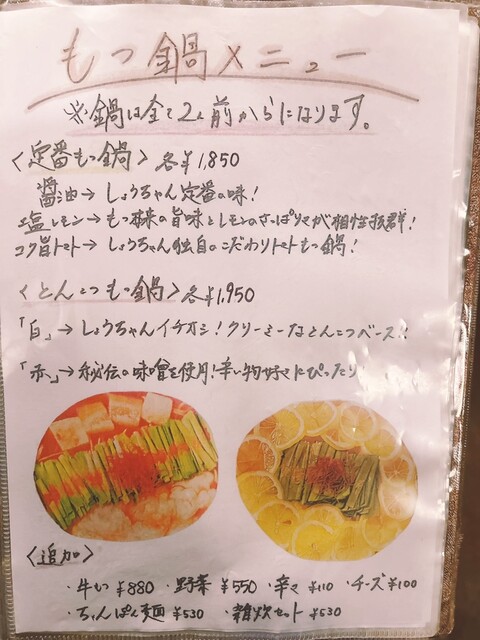 もつ鍋メニュー
※鍋は全て2人前からになります。
〈定番もつ鍋〉各¥1,850
醤油→しょうちゃん定番の味!
塩レモン→もつ本来の旨味とレモンのさっぱりさが相性抜群!
コク旨トマト→しょうちゃん独自のこだわりトマトもつ鍋!
〈とんこつもつ鍋〉各¥1,950
「白」→しょうちゃんイチオシ!クリーミーなとんこつベース!!
「赤」→秘伝の味噌を使用!辛い物好きにぴったり
〈追加〉
・牛もつ¥880 ・野菜¥550 ・辛さ¥110 ・チーズ¥100
・ちゃんぽん麺¥530 ・雑炊セット¥530